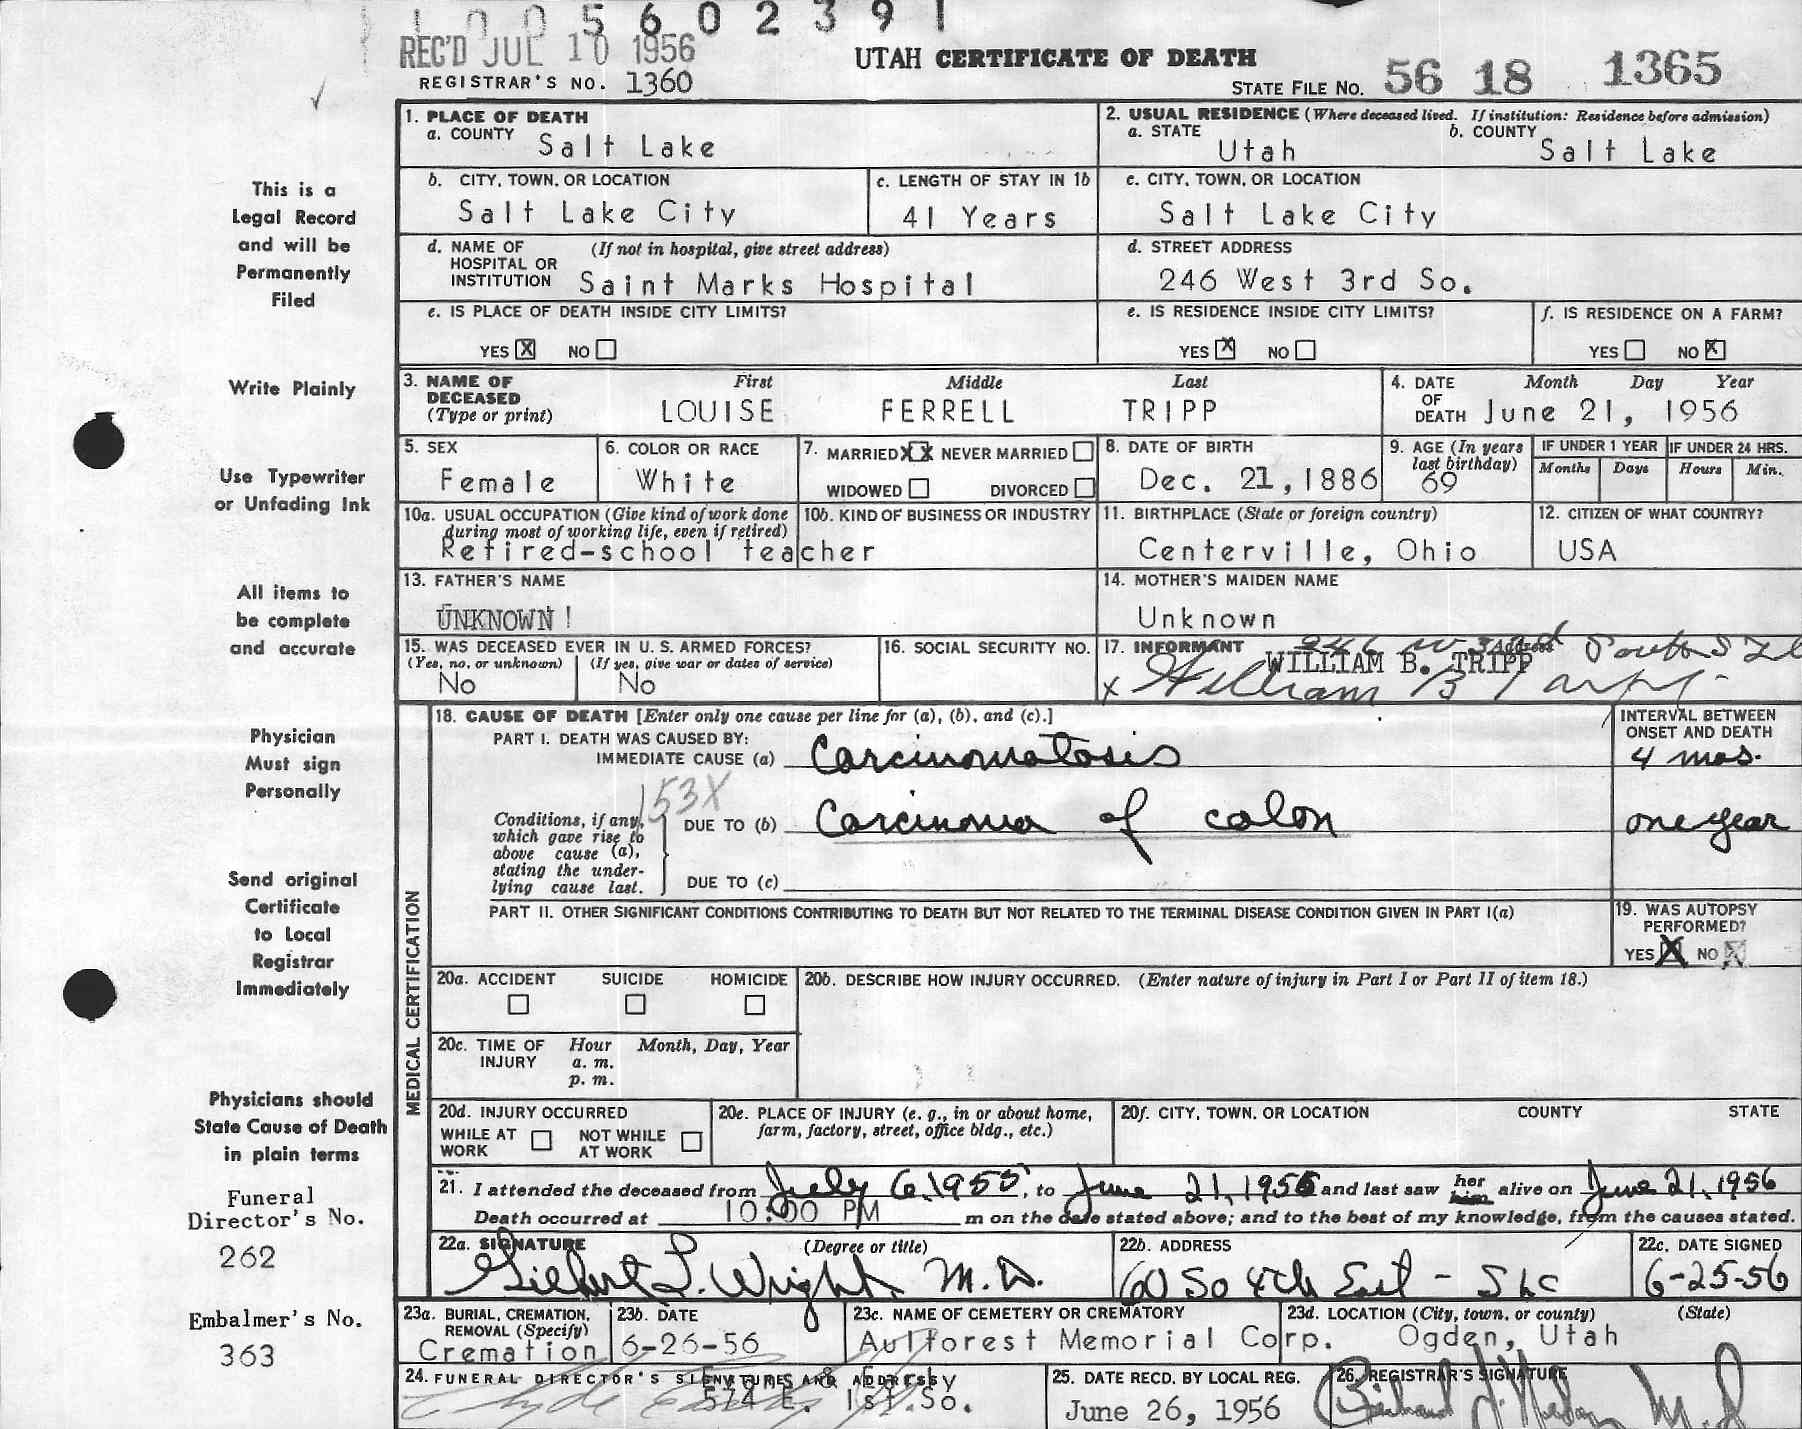 1 0 0 5 6 0 2 3 9 1
REC'D JUL 10 1956
UTAH CERTIFICATE OF DEATH
REGISTRAR'S NO. 1360
STATE FILE NO. 56 18 1365
This is a
Legal Record
and will be
Permanently
Filed
Write Plainly
Use Typewriter
or Unfading Ink
All items to
be complete
and accurate
Physician
Must sign
Personally
Send original
Certificate
to Local
Registrar
Immediately
Physicians should
State Cause of Death
in plain terms
Funeral
Director's No.
262
Embalmer's No.
363
1. PLACE OF DEATH
a. COUNTY Salt Lake
2. USUAL RESIDENCE (Where deceased lived. If institution: Residence before admission)
a. STATE Utah b. COUNTY Salt Lake
b. CITY, TOWN, OR LOCATION Salt Lake City
c. LENGTH OF STAY IN 1b 41 Years
c. CITY, TOWN, OR LOCATION Salt Lake City
d. NAME OF HOSPITAL OR INSTITUTION (If not in hospital, give street address) Saint Marks Hospital
d. STREET ADDRESS 246 West 3rd So.
e. IS PLACE OF DEATH INSIDE CITY LIMITS?
YES X NO
e. IS RESIDENCE INSIDE CITY LIMITS?
YES X NO
f. IS RESIDENCE ON A FARM?
YES NO X
3. NAME OF DECEASED (Type or print) First Middle Last
LOUISE FERRELL TRIPP
4. DATE OF DEATH Month Day Year
June 21, 1956
5. SEX Female
6. COLOR OR RACE White
7. MARRIED XX NEVER MARRIED
WIDOWED DIVORCED
8. DATE OF BIRTH Dec. 21, 1886
9. AGE (In years last birthday) 69
IF UNDER 1 YEAR Months Days
IF UNDER 24 HRS. Hours Min.
10a. USUAL OCCUPATION (Give kind of work done during most of working life, even if retired)
Retired-school teacher
10b. KIND OF BUSINESS OR INDUSTRY
11. BIRTHPLACE (State or foreign country) Centerville, Ohio
12. CITIZEN OF WHAT COUNTRY? USA
13. FATHER'S NAME UNKNOWN!
14. MOTHER'S MAIDEN NAME Unknown
15. WAS DECEASED EVER IN U. S. ARMED FORCES?
(Yes, no, or unknown) No (If yes, give war or dates of service) No
16. SOCIAL SECURITY NO.
17. INFORMANT Address 246 W 3rd South
WILLIAM B. TRIPP
x William B Tripp
MEDICAL CERTIFICATION
18. CAUSE OF DEATH [Enter only one cause per line for (a), (b), and (c).]
INTERVAL BETWEEN ONSET AND DEATH
PART I. DEATH WAS CAUSED BY:
IMMEDIATE CAUSE (a) Carcinomatosis 4 mos.
153X
Conditions, if any, which gave rise to above cause (a), stating the underlying cause last.
DUE TO (b) Carcinoma of colon one year
DUE TO (c)
PART II. OTHER SIGNIFICANT CONDITIONS CONTRIBUTING TO DEATH BUT NOT RELATED TO THE TERMINAL DISEASE CONDITION GIVEN IN PART I(a)
19. WAS AUTOPSY PERFORMED?
YES X NO X
20a. ACCIDENT SUICIDE HOMICIDE
20b. DESCRIBE HOW INJURY OCCURRED. (Enter nature of injury in Part I or Part II of item 18.)
20c. TIME OF INJURY Hour a. m. p. m. Month, Day, Year
20d. INJURY OCCURRED
WHILE AT WORK NOT WHILE AT WORK
20e. PLACE OF INJURY (e. g., in or about home, farm, factory, street, office bldg., etc.)
20f. CITY, TOWN, OR LOCATION COUNTY STATE
21. I attended the deceased from July 6, 1955, to June 21, 1956 and last saw her him alive on June 21, 1956
Death occurred at 10:00 PM m on the date stated above; and to the best of my knowledge, from the causes stated.
22a. SIGNATURE (Degree or title) Gilbert L. Wright M.D.
22b. ADDRESS 60 So 4th East - SLC
22c. DATE SIGNED 6-25-56
23a. BURIAL, CREMATION, REMOVAL (Specify) Cremation
23b. DATE 6-26-56
23c. NAME OF CEMETERY OR CREMATORY Aultforest Memorial Corp.
23d. LOCATION (City, town, or county) (State) Ogden, Utah
24. FUNERAL DIRECTOR'S SIGNATURE AND ADDRESS
574 E. 1st So.
25. DATE RECD. BY LOCAL REG. June 26, 1956
26. REGISTRAR'S SIGNATURE